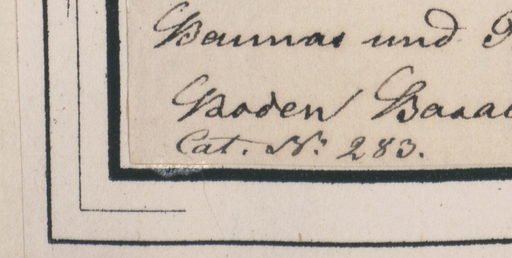 Baumas und
Boden Baaa
Cat. Nº 283.